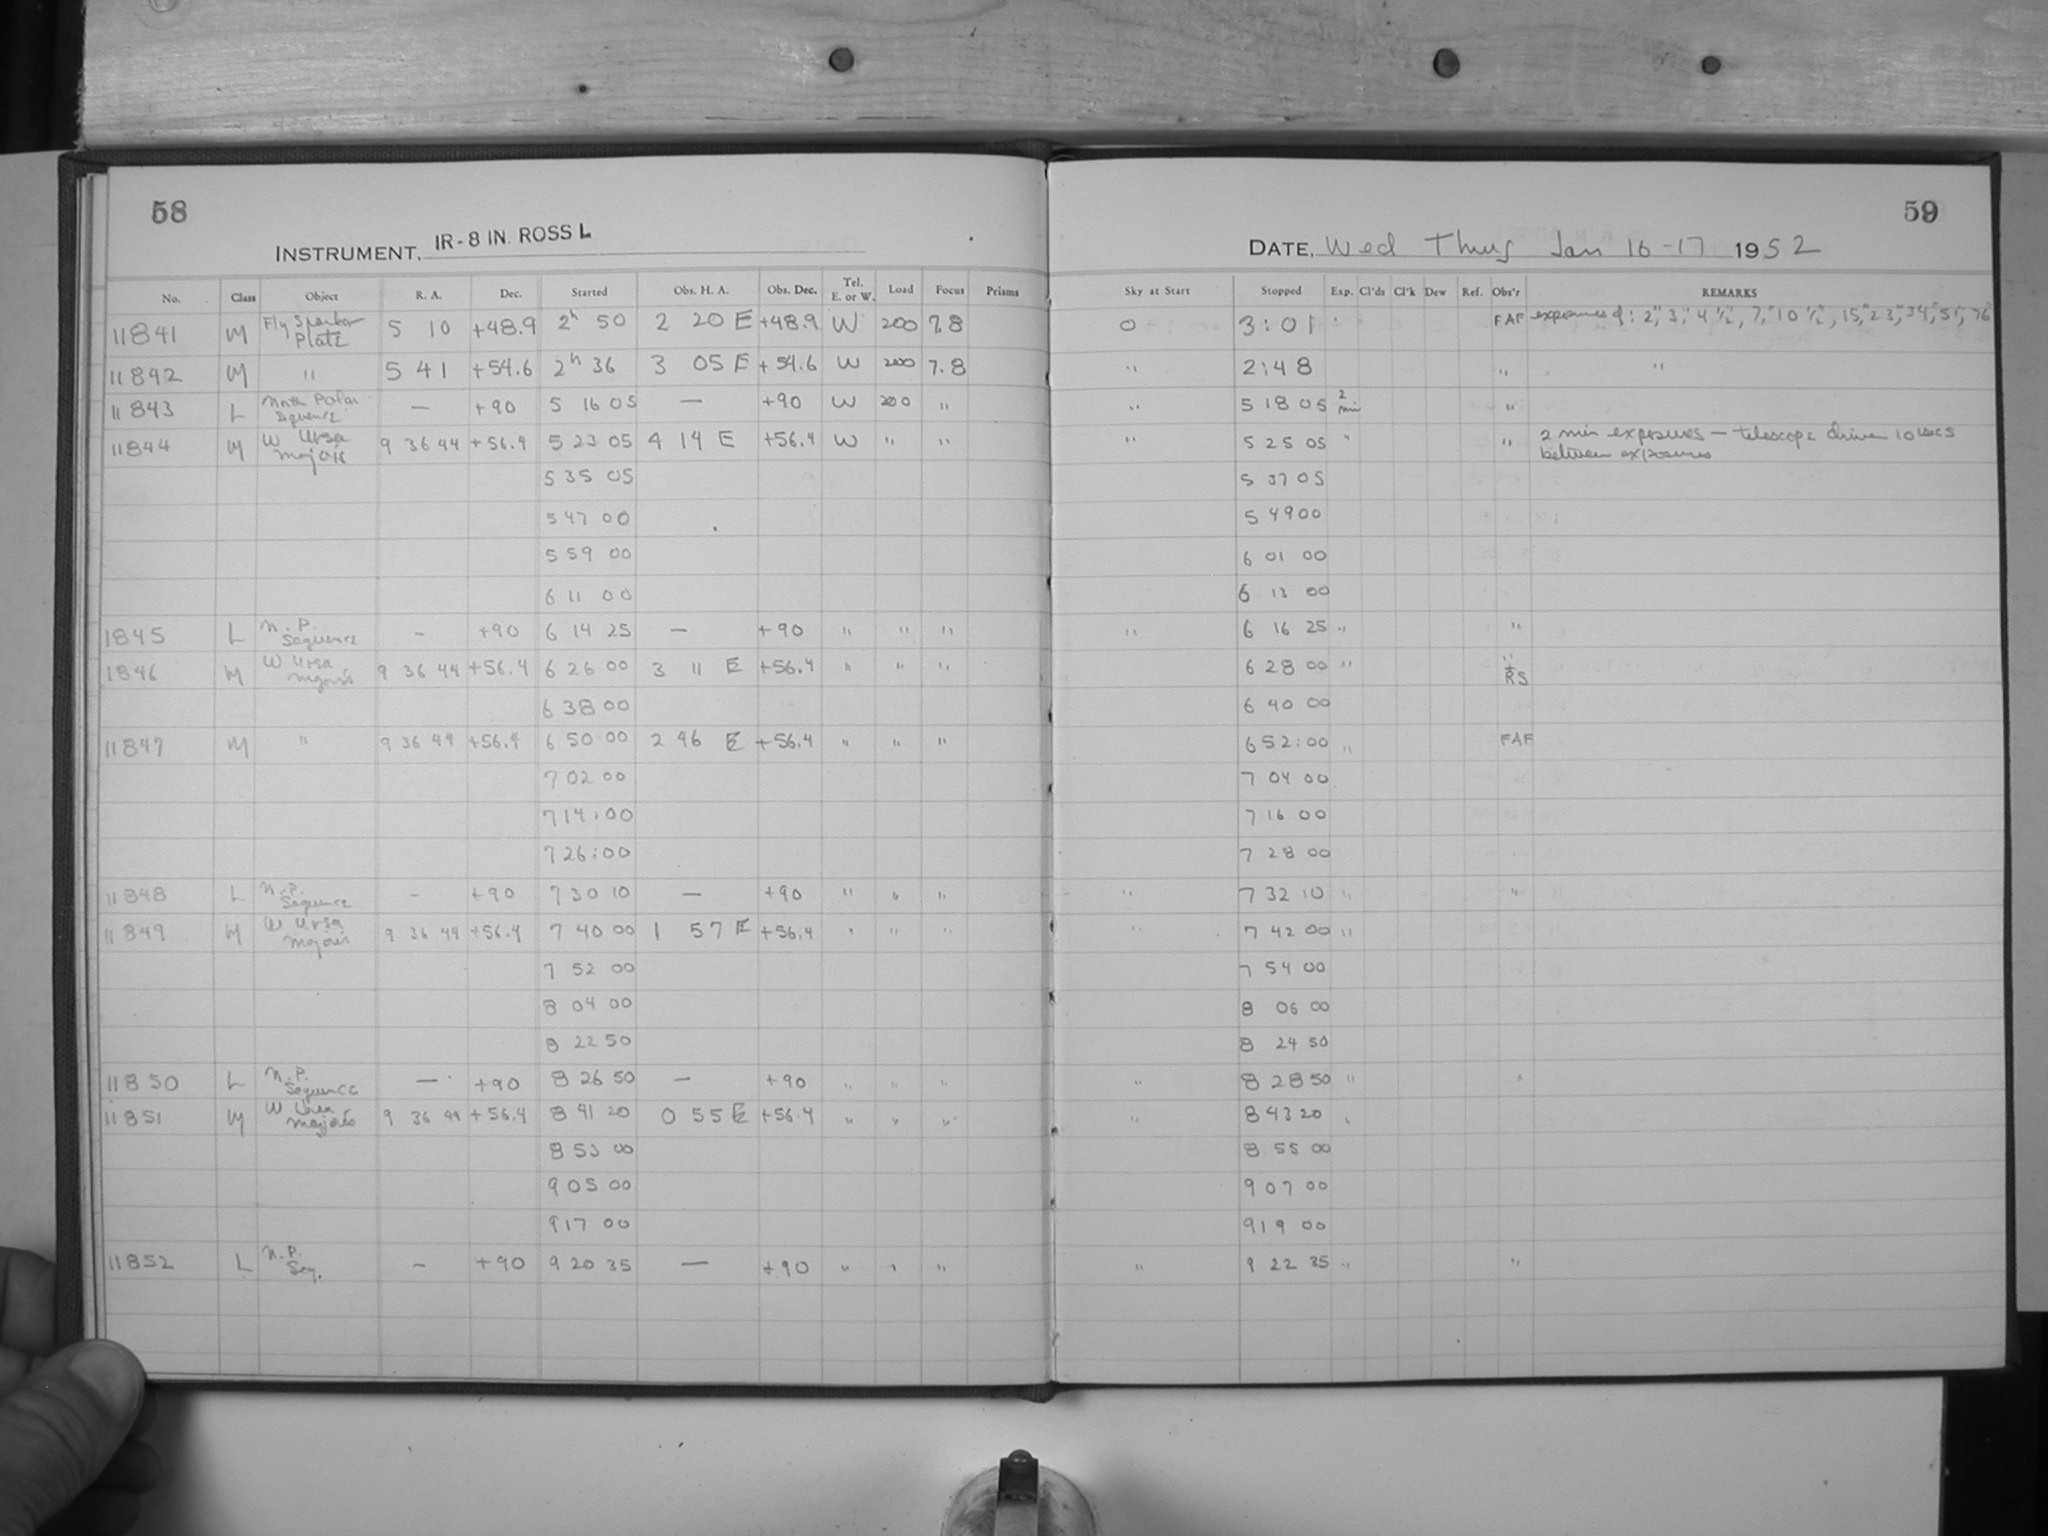 58
INSTRUMENT, IR-8 IN. ROSS L
No. Class Object R. A. Dec. Started Obs. H. A. Obs. Dec. Tel. E. or W. Load Focus Prisms
11841 M Fly Spanker Plate 5 10 +48.9 2h 50 2 20 E +48.9 W 200 7.8
11842 M " 5 41 +54.6 2h 36 3 05 E +54.6 W 200 7.8
11843 L North Polar Sequence — +90 5 16 05 — +90 W 200 "
11844 M W Ursa Majoris 9 36 44 +56.4 5 23 05 4 14 E +56.4 W " "
5 35 05
5 47 00
5 59 00
6 11 00
1845 L N.P. Sequence — +90 6 14 25 — +90 " " "
1846 M W Ursa Majoris 9 36 44 +56.4 6 26 00 3 11 E +56.4 " " "
6 38 00
11847 M " 9 36 44 +56.4 6 50 00 2 46 E +56.4 " " "
7 02 00
7 14:00
7 26:00
11848 L N.P. Sequence — +90 7 30 10 — +90 " " "
11849 M W Ursa Majoris 9 36 44 +56.4 7 40 00 1 57 E +56.4 " " "
7 52 00
8 04 00
8 22 50
11850 L N.P. Sequence — +90 8 26 50 — +90 " " "
11851 M W Ursa Majoris 9 36 44 +56.4 8 41 20 0 55 E +56.4 " " "
8 53 00
9 05 00
9 17 00
11852 L N.P. Seq. — +90 9 20 35 — +90 " " "
59
DATE, Wed Thurs Jan 16-17 1952
Sky at Start Stopped Exp. Cl'ds Cl'k Dew Ref. Obs'r REMARKS
0 3:01 FAF exposures of: 2", 3", 4 1/2", 7", 10 1/2", 15", 23", 34", 51", 76"
" 2:48 " "
" 5 18 05 2 min "
" 5 25 05 " " 2 min exposures — telescope driven 10 secs
between exposures
5 37 05
5 49 00
6 01 00
6 13 00
" 6 16 25 " "
6 28 00 " " + RS
6 40 00
6 52:00 " FAF
7 04 00
7 16 00
7 28 00
" 7 32 10 " "
" 7 42 00 "
7 54 00
8 06 00
8 24 50
" 8 28 50 " "
" 8 43 20 "
8 55 00
9 07 00
9 19 00
" 9 22 35 " "